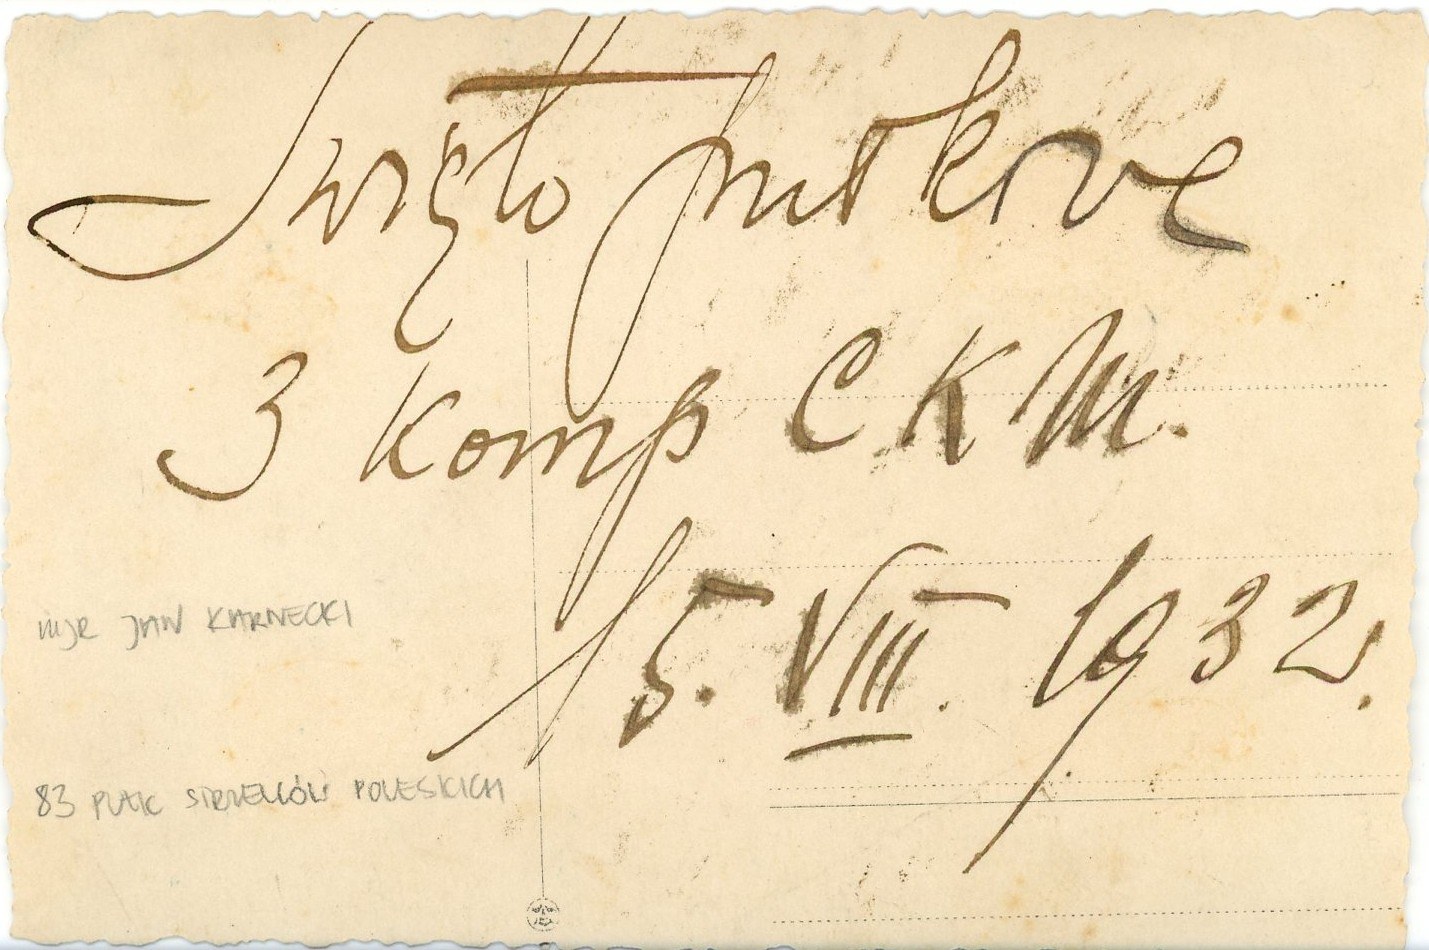 Święto pułkowe
3 Komp C K M.
15. VIII. 1932.
mjr JAN KARNECKI
83 PUŁK STRZELCÓW POLESKICH